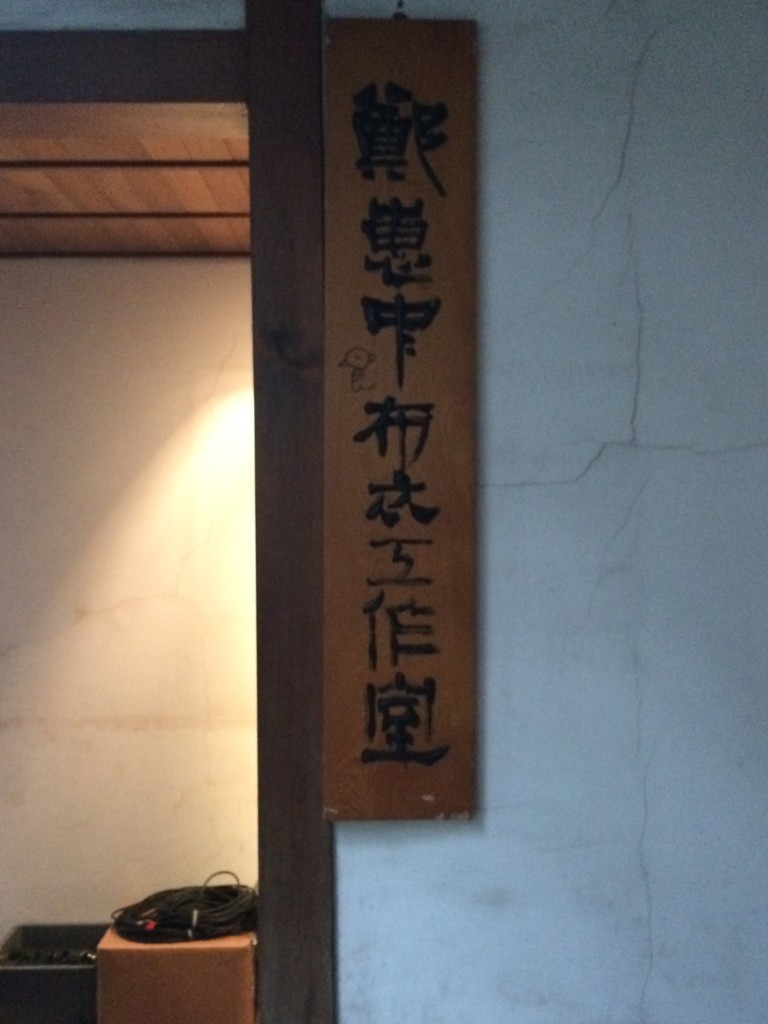 鄭惠中布衣工作室